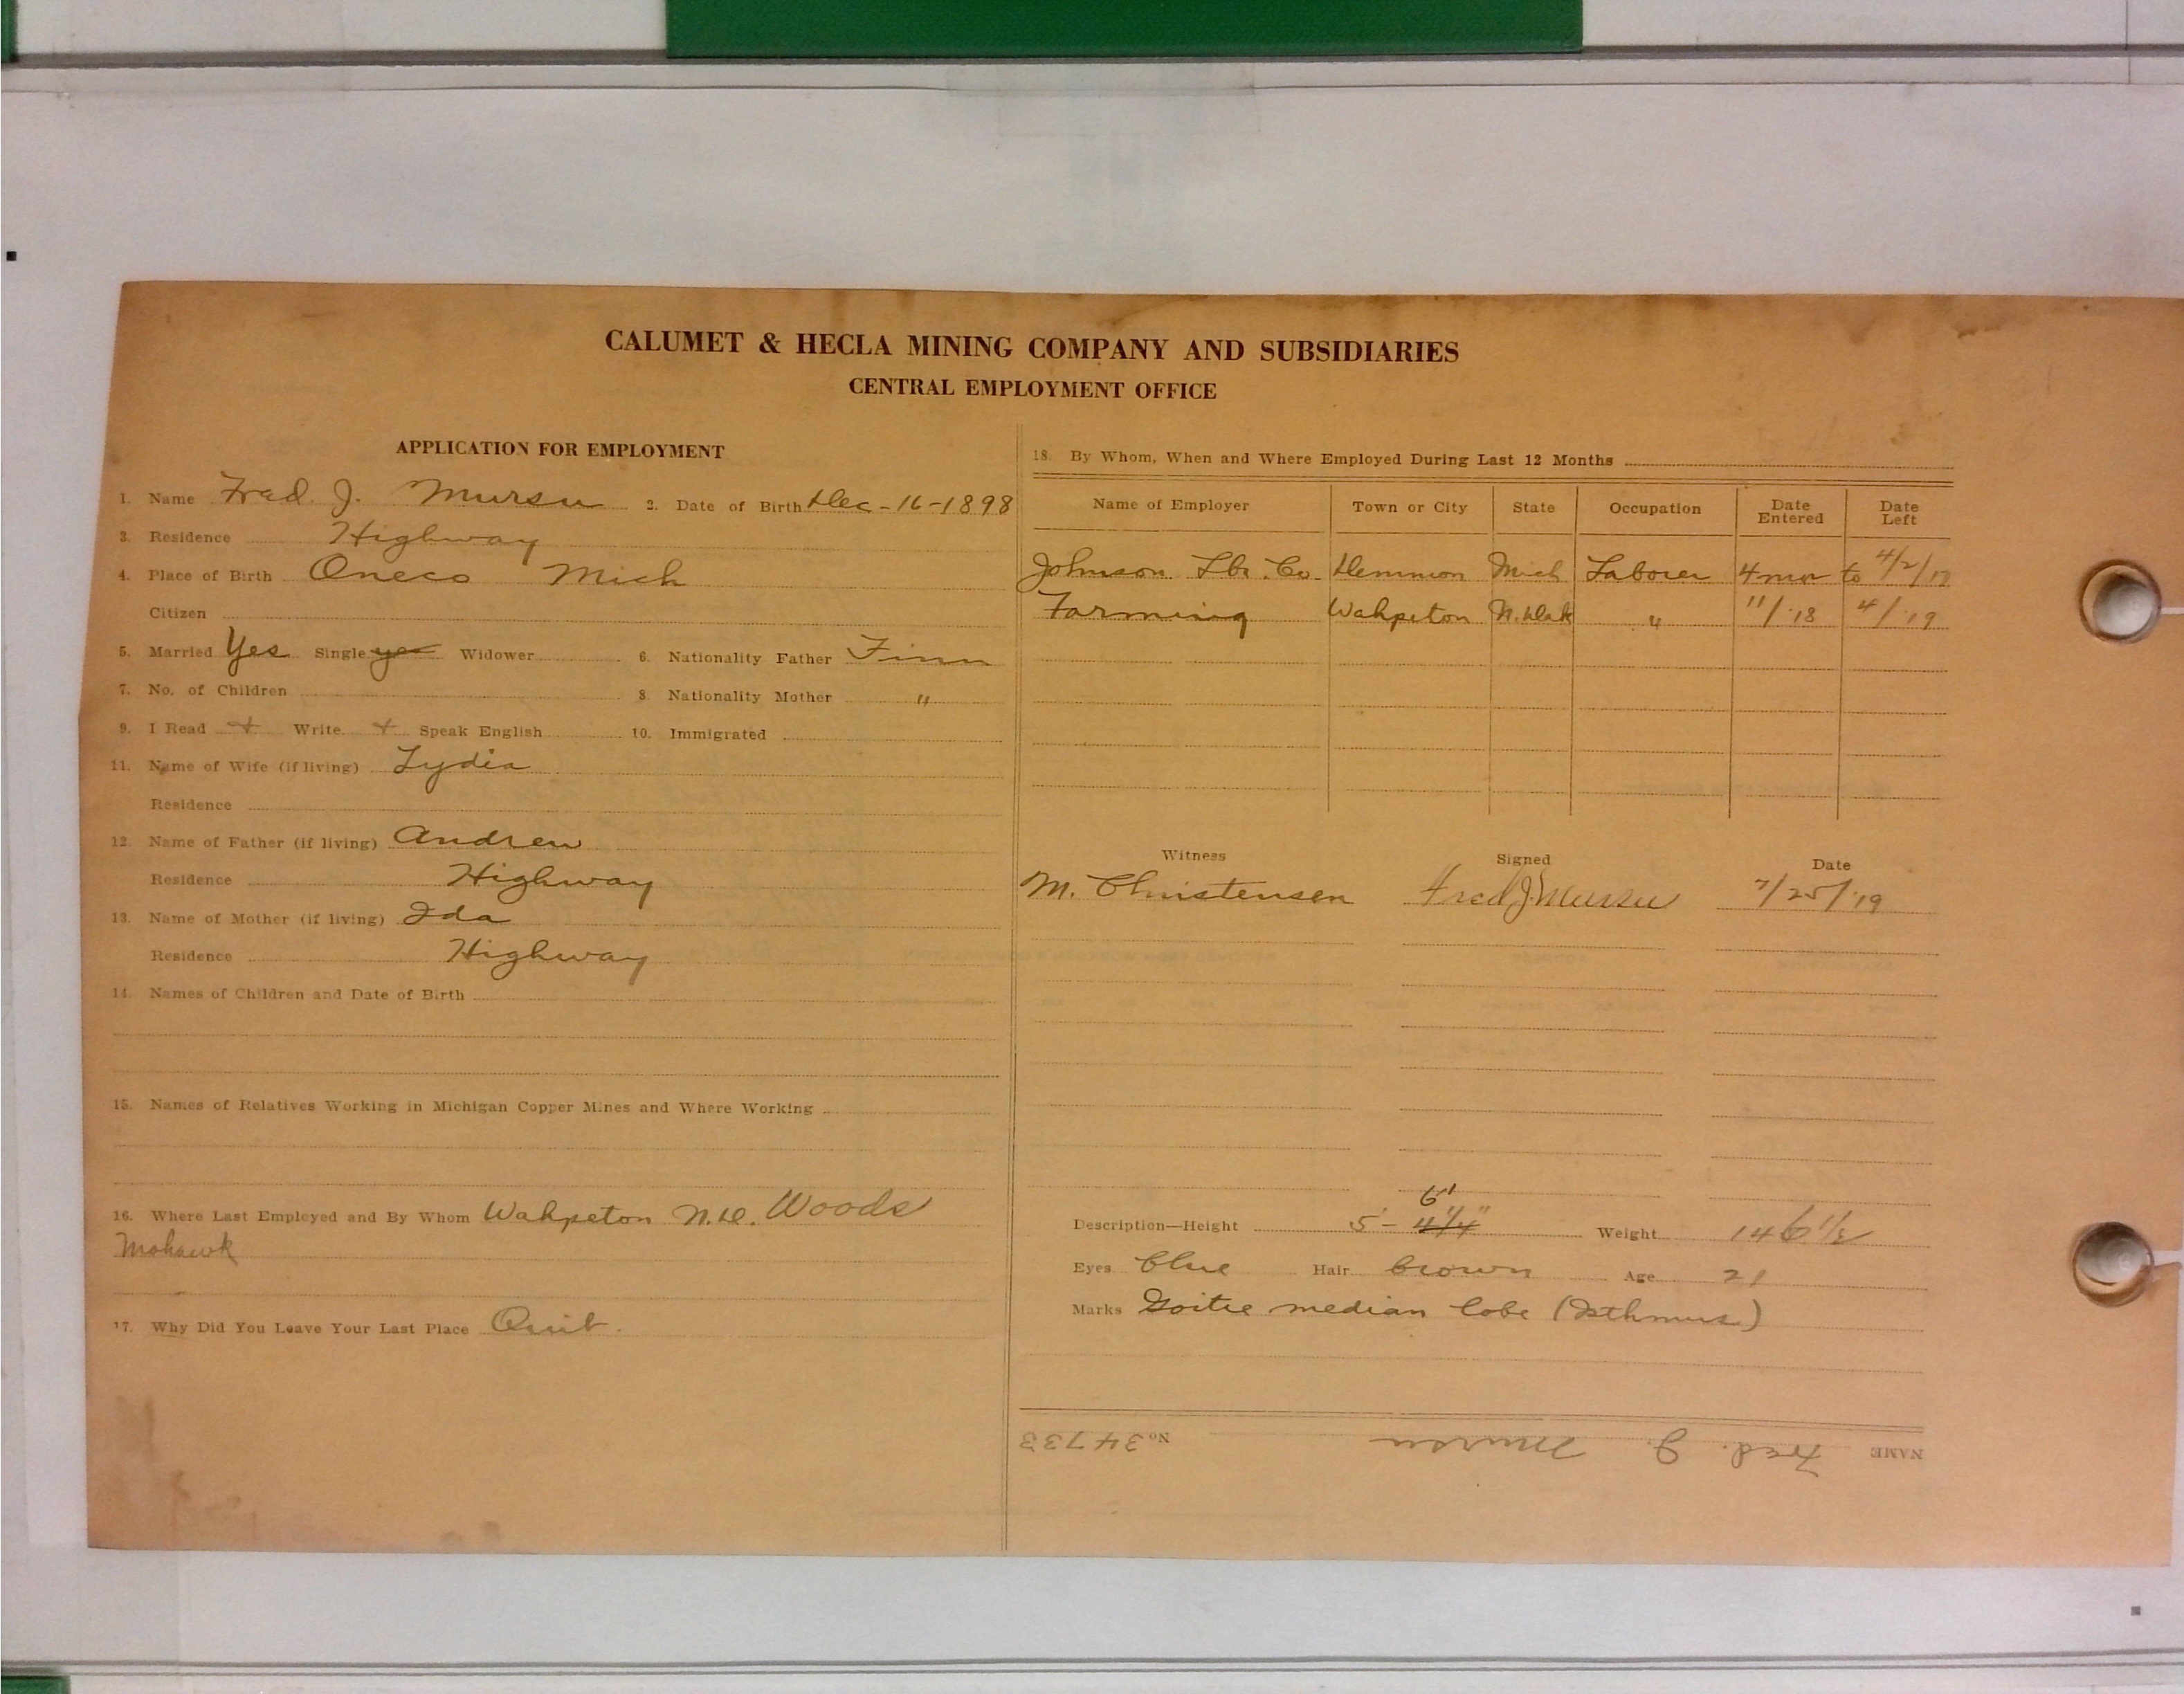 CALUMET & HECLA MINING COMPANY AND SUBSIDIARIES
CENTRAL EMPLOYMENT OFFICE
APPLICATION FOR EMPLOYMENT
1. Name Fred. J. Mursu 2. Date of Birth Dec-16-1898
3. Residence Highway
4. Place of Birth Oneco Mich
Citizen
5. Married Yes Single yes Widower 6. Nationality Father Finn
7. No. of Children 8. Nationality Mother "
9. I Read + Write + Speak English 10. Immigrated
11. Name of Wife (if living) Lydia
Residence
12. Name of Father (if living) Andrew
Residence Highway
13. Name of Mother (if living) Ida
Residence Highway
14. Names of Children and Date of Birth
15. Names of Relatives Working in Michigan Copper Mines and Where Working
16. Where Last Employed and By Whom Wahpeton N.D. Woods
Mohawk
17. Why Did You Leave Your Last Place Quit.
18. By Whom, When and Where Employed During Last 12 Months
Name of Employer Town or City State Occupation Date Entered Date Left
Johnson Lbr. Co. Mich Laborer 4 mos to 4/2/17
Farming Wahpeton N. Dak " 11/'18 4/'19
Witness Signed Date
M. Christensen Fred J. Mursu 7/25/'19
6"
Description—Height 5'- 4 1/4" Weight 146 1/2
Eyes Blue Hair brown Age 21
Marks Goitre median lobe (Isthmus)
NAME Fred. J. Mursu No. 34733